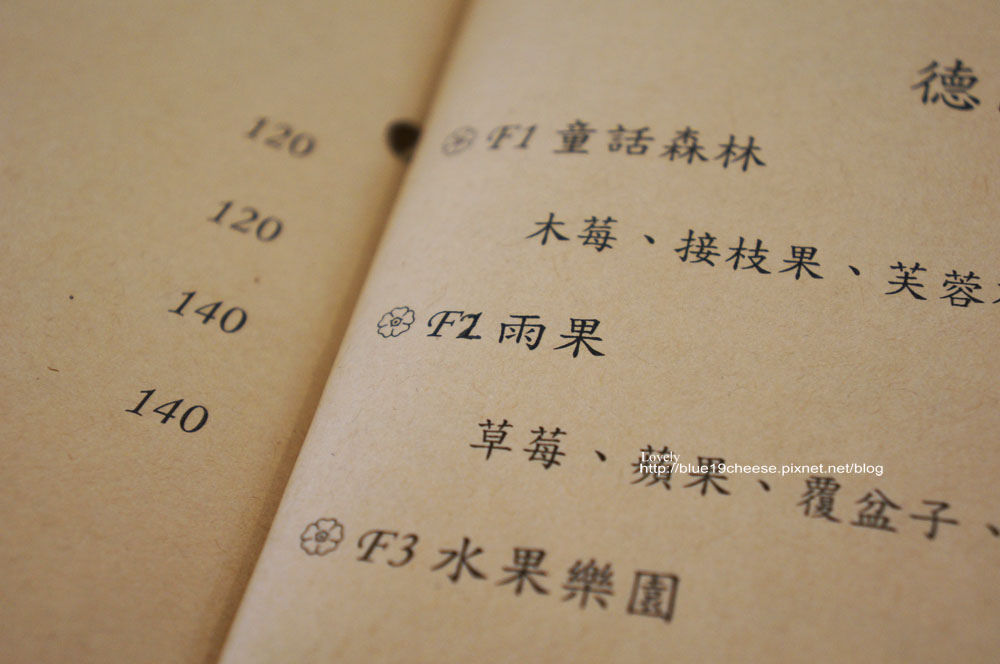 120
120
140
140
德
F1 童話森林
木莓、接枝果、芙蓉
F2 雨果
草莓、蘋果、覆盆子、
F3 水果樂園
Lovely
http://blue19cheese.pixnet.net/blog